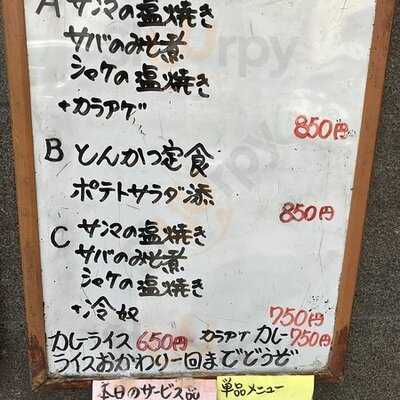 A サンマの塩焼き
サバのみそ煮
シャケの塩焼き
+カラアゲ
850円
B とんかつ定食
ポテトサラダ添
850円
C サンマの塩焼き
サバのみそ煮
シャケの塩焼き
+冷奴
750円
カレーライス 650円 カラアゲカレー750円
ライスおかわり一回までどうぞ
本日のサービス品 単品メニュー